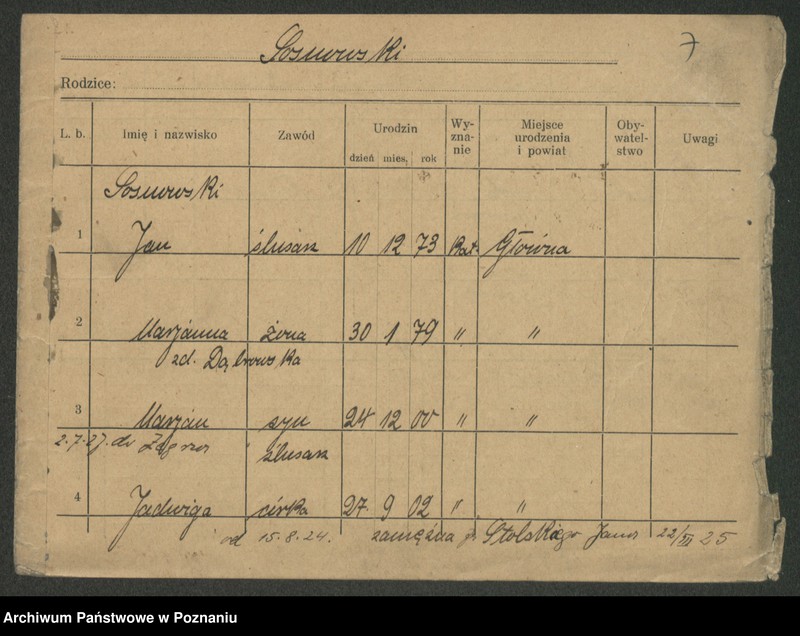 Sosnowski 7
Rodzice:
L. b. Imię i nazwisko Zawód Urodzin dzień mies. rok Wyznanie Miejsce urodzenia i powiat Obywatelstwo Uwagi
Sosnowski
1 Jan ślusarz 10 12 73 kat. Główna
2 Marjanna żona 30 1 79 " "
zd. Dąbrowska
3 Marjan syn 24 12 00 " "
2.7.27. do ślusarz
4 Jadwiga córka 27 9 02 " "
od 15.8.24. zamężna Stolskiego Jana 22/VII 25
Archiwum Państwowe w Poznaniu